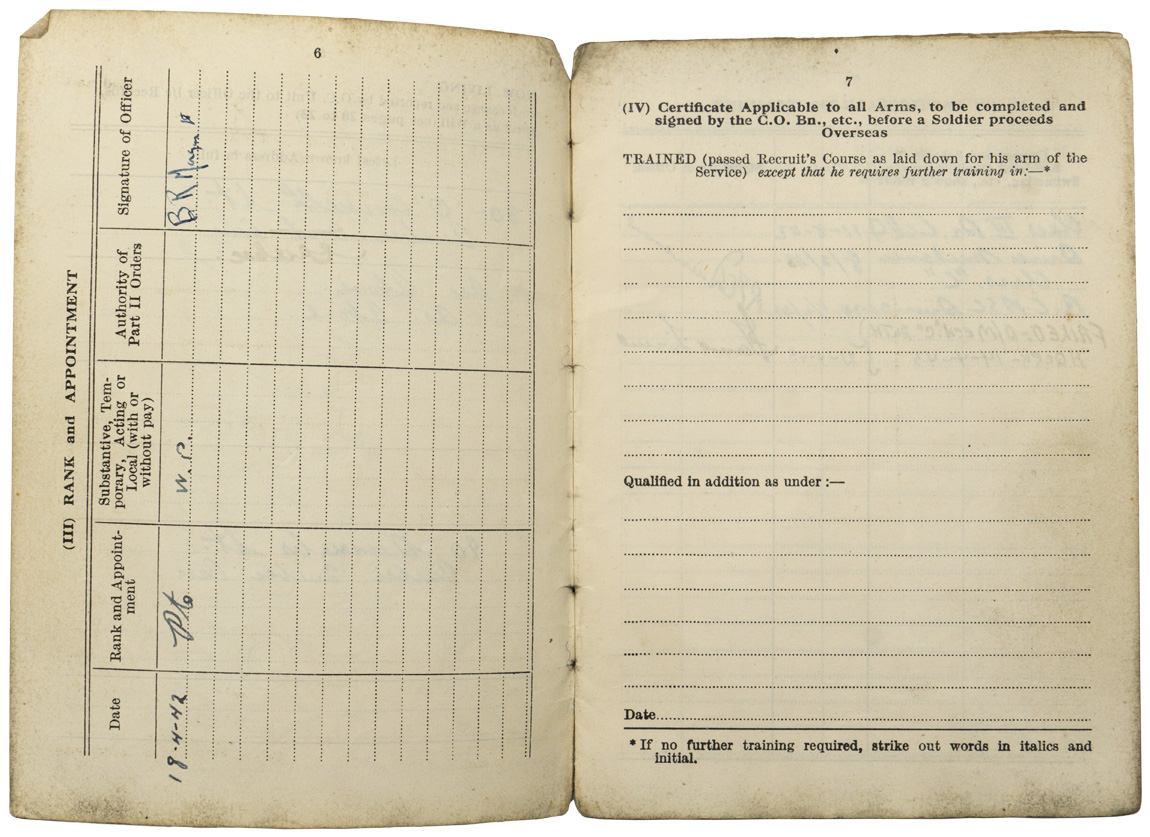 6
(III) RANK and APPOINTMENT
Date
Rank and Appoint-
ment
Substantive, Tem-
porary, Acting or
Local (with or
without pay)
Authority of
Part II Orders
Signature of Officer
18-4-42
Pte
W.P.
B R
7
(IV) Certificate Applicable to all Arms, to be completed and
signed by the C.O. Bn., etc., before a Soldier proceeds
Overseas
TRAINED (passed Recruit's Course as laid down for his arm of the
Service) except that he requires further training in:—*
Qualified in addition as under :—
Date
* If no further training required, strike out words in italics and
initial.